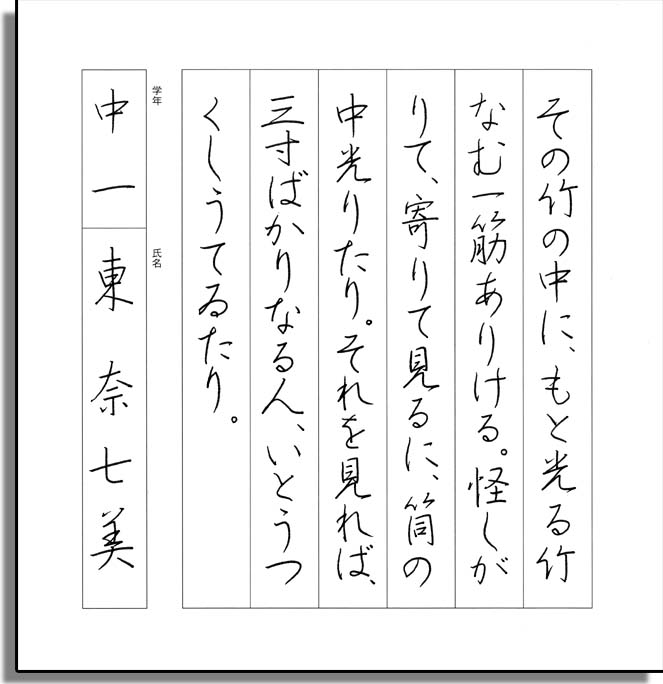 その竹の中に、もと光る竹
なむ一筋ありける。怪しが
りて、寄りて見るに、筒の
中光りたり。それを見れば、
三寸ばかりなる人、いとうつ
くしうてゐたり。
学年
中一
氏名
東 奈七美